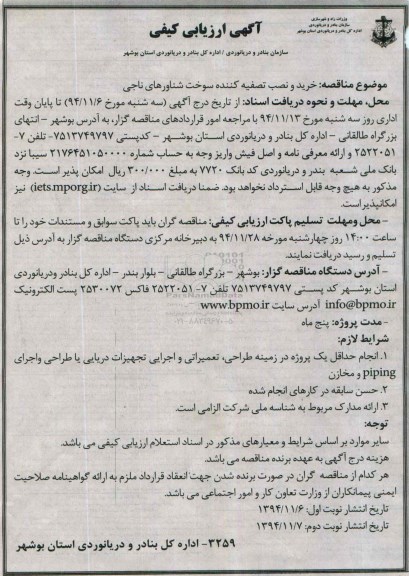 وزارت راه و شهرسازی
سازمان بنادر و دریانوردی
اداره کل بنادر و دریانوردی استان بوشهر
آگهی ارزیابی کیفی
سازمان بنادر و دریانوردی / اداره کل بنادر و دریانوردی استان بوشهر
موضوع مناقصه: خرید و نصب تصفیه کننده سوخت شناورهای ناجی
محل، مهلت و نحوه دریافت اسناد: از تاریخ درج آگهی (سه شنبه مورخ ۹۴/۱۱/۶) تا پایان وقت
اداری روز سه شنبه مورخ ۹۴/۱۱/۱۳ با مراجعه امور قراردادهای مناقصه گزار، به آدرس بوشهر - انتهای
بزرگراه طالقانی - اداره کل بنادر و دریانوردی استان بوشهر - کدپستی ۷۵۱۳۷۴۹۷۹۷- تلفن ۷-
۲۵۲۲۰۵۱ و ارائه معرفی نامه و اصل فیش واریز وجه به حساب شماره ۲۱۷۶۴۵۱۰۵۰۰۰۰ سیبا نزد
بانک ملی شعبه بندر و دریانوردی کد بانک ۷۷۲۰ به مبلغ ۳۰۰/۰۰۰ ریال امکان پذیر است. وجه
مذکور به هیچ وجه قابل استرداد نخواهد بود. ضمنا دریافت اسناد از سایت (iets.mporg.ir) نیز
امکانپذیر است.
- محل ومهلت تسلیم پاکت ارزیابی کیفی: مناقصه گران باید پاکت سوابق و مستندات خود را تا
ساعت ۱۴:۰۰ روز چهارشنبه مورخه ۹۴/۱۱/۲۸ به دبیرخانه مرکزی دستگاه مناقصه گزار به آدرس ذیل
تسلیم و رسید دریافت نمایند.
- آدرس دستگاه مناقصه گزار: بوشهر - بزرگراه طالقانی - بلوار بندر - اداره کل بنادر ودریانوردی
استان بوشهر کد پستی ۷۵۱۳۷۴۹۷۹۷ تلفن ۷- ۲۵۲۲۰۵۱ فاکس ۲۵۳۰۰۷۲ پست الکترونیک
info@bpmo.ir آدرس سایت www.bpmo.ir
- مدت پروژه: پنج ماه
شرایط لازم:
۱. انجام حداقل یک پروژه در زمینه طراحی، تعمیراتی و اجرایی تجهیزات دریایی یا طراحی واجرای
piping و مخازن
۲. حسن سابقه در کارهای انجام شده
۳. ارائه مدارک مربوط به شناسه ملی شرکت الزامی است.
توجه:
سایر موارد بر اساس شرایط و معیارهای مذکور در اسناد استعلام ارزیابی کیفی می باشد.
هزینه درج آگهی به عهده برنده مناقصه می باشد.
هر کدام از مناقصه گران در صورت برنده شدن جهت انعقاد قرارداد ملزم به ارائه گواهینامه صلاحیت
ایمنی پیمانکاران از وزارت تعاون کار و امور اجتماعی می باشد.
تاریخ انتشار نوبت اول: ۱۳۹۴/۱۱/۶
تاریخ انتشار نوبت دوم: ۱۳۹۴/۱۱/۷
۳۲۵۹- اداره کل بنادر و دریانوردی استان بوشهر